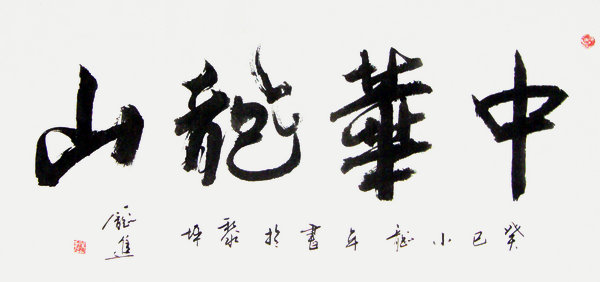 中華龍山
癸巳小龍年書於黎坪
龍進